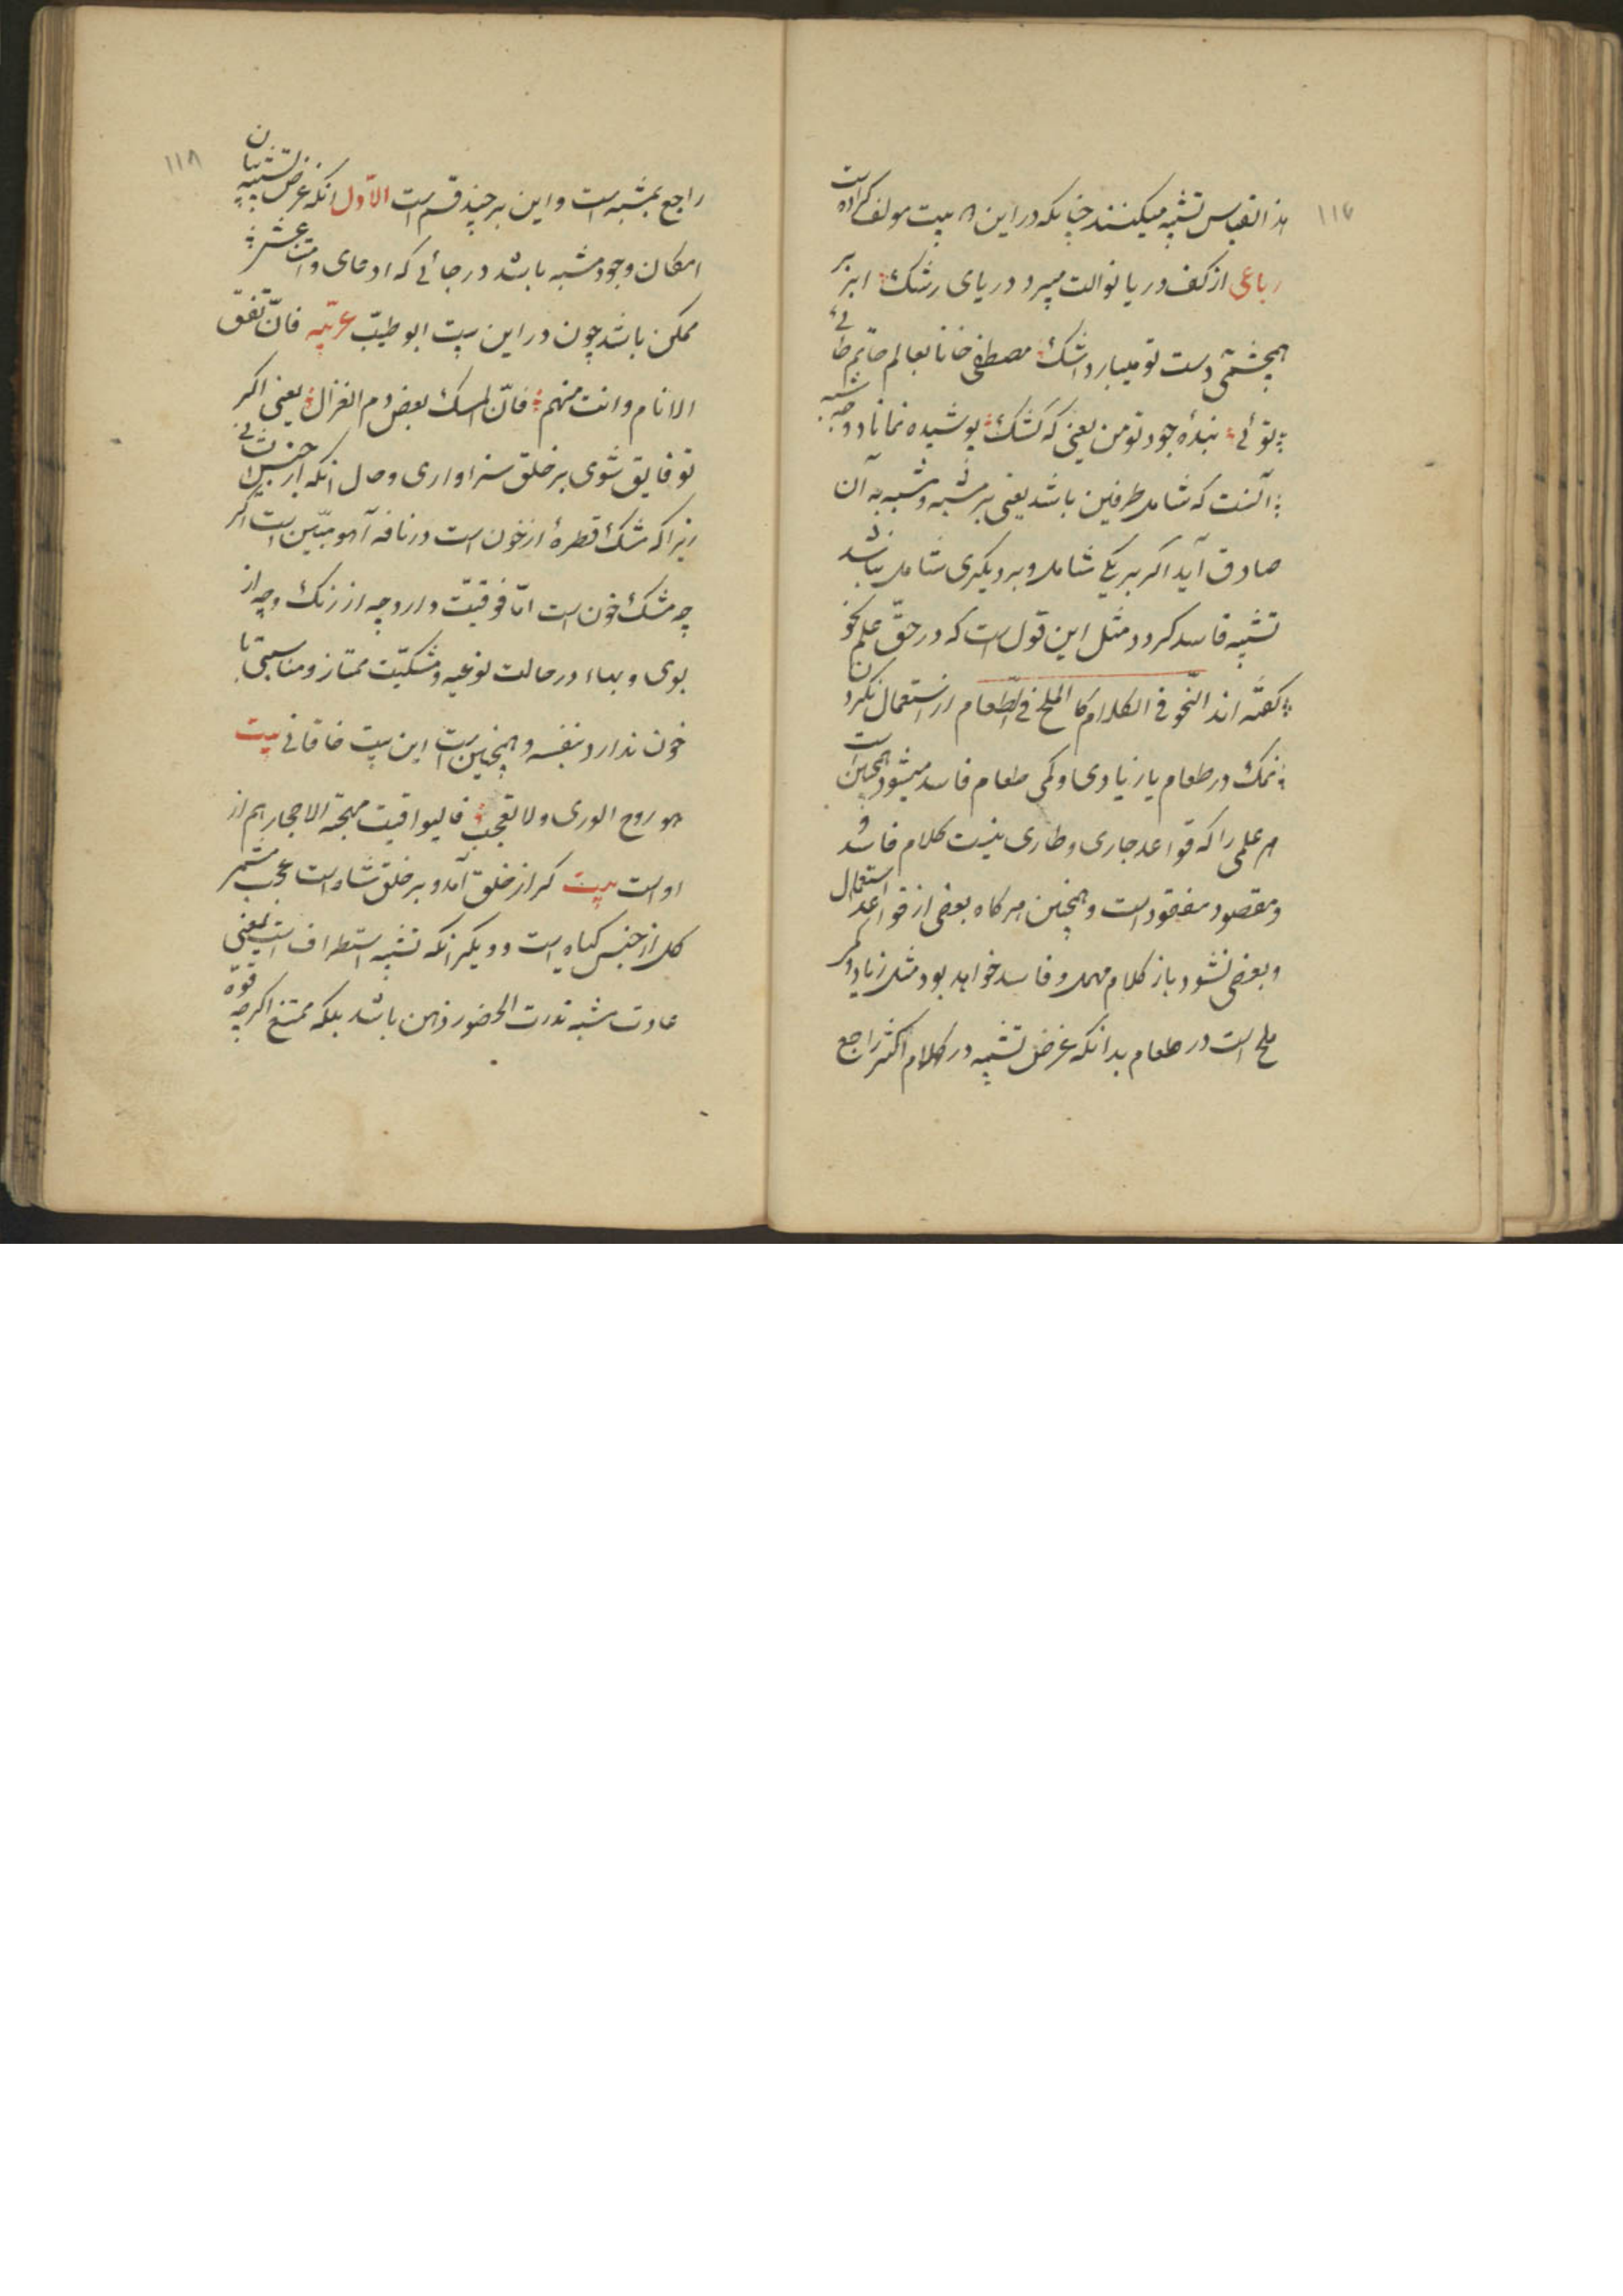 ١١٧
هذا القیاس تشبیه میکنند چنانکه در این بیت مولف کرده است
رباعی از کف دریا نوالت میبرد دریای رشک ابر بر
همچشمی دست تو میبارد اشک مصطفی خانا بعالم حاتم طائی
توئی بندهٔ جود تو من یعنی که کشک پوشیده نماناد وجه شبه
آنست که شامل طرفین باشد یعنی بر مشبه و مشبه به آن
صادق آید اکر بر یکی شامل و بر دیکری شامل نباشد
تشبیه فاسد کردد مثل این قول است که در حق علم نحو
کفته اند النحو فی الکلام کالملح فی الطعام از استعمال نکردن
نمک در طعام یا زیادی و کمی طعام فاسد میشود همچنین است
هر علمی را که قواعد جاری و طاری نیست کلام فاسد و
ومقصود مفقود است و همچنین هرکاه بعضی از قواعد استعمال
و بعضی نشود باز کلام مهمل و فاسد خواهد بود مثل زیاد و کم
ملح است در طعام بدانکه غرض تشبیه در کلام اکثر راجع
١١٨
راجع بمشبه است و این بر چند قسم است الاول انکه غرض تشبیه بیان
امکان وجود مشبه باشد در جائی که ادعای
ممکن باشد چون در این بیت ابو طیب عربیه فان تفق
الانام وانت منهم فان المسک بعض دم الغزال یعنی اکر
تو فایق شوی بر خلق سزاواری و حال انکه از جنس
زیرا که مشک قطرهٔ از خون است در نافه آهو مبین است اکر
چه مشک خون است اما فوقیت دارد چه از رنک و چه از
بوی و بهاء در حالت نوعیه و مشکیت ممتاز و مناسبتی با
خون ندارد بنفسه و همچنین است این بیت خاقانی بیت
هو روح الوری ولا تعجب فالیواقیت مهجة الاحجار هم از
اوست بیت کر از خلق آمد و بر خلق شاه است عجب مشمر
کل از جنس کیاه است و دیکر انکه تشبیه استطراف است یعنی
عادت مشبه ندرت الحضور ذهن باشد بلکه ممتنع اکرچه قوه